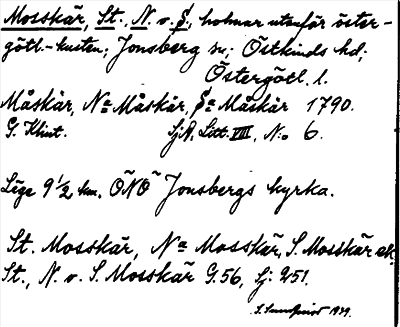 Mosskär, St., N. v. S., holmar utanför öster-
götl.-kusten; Jonsberg sn; Östkinds hd;
Östergötl. l.
Måskär, Na Måskär, Sa Måskär 1790.
G. Klint. SjA, Litt. VIII, No 6.
Läge 9 1/2 km. ÖNÖ Jonsbergs kyrka.
St. Mosskär, Na Mosskär, S. Mosskär ek.
St., N. v. S. Mosskär G.56, Sj: 251.
1939.